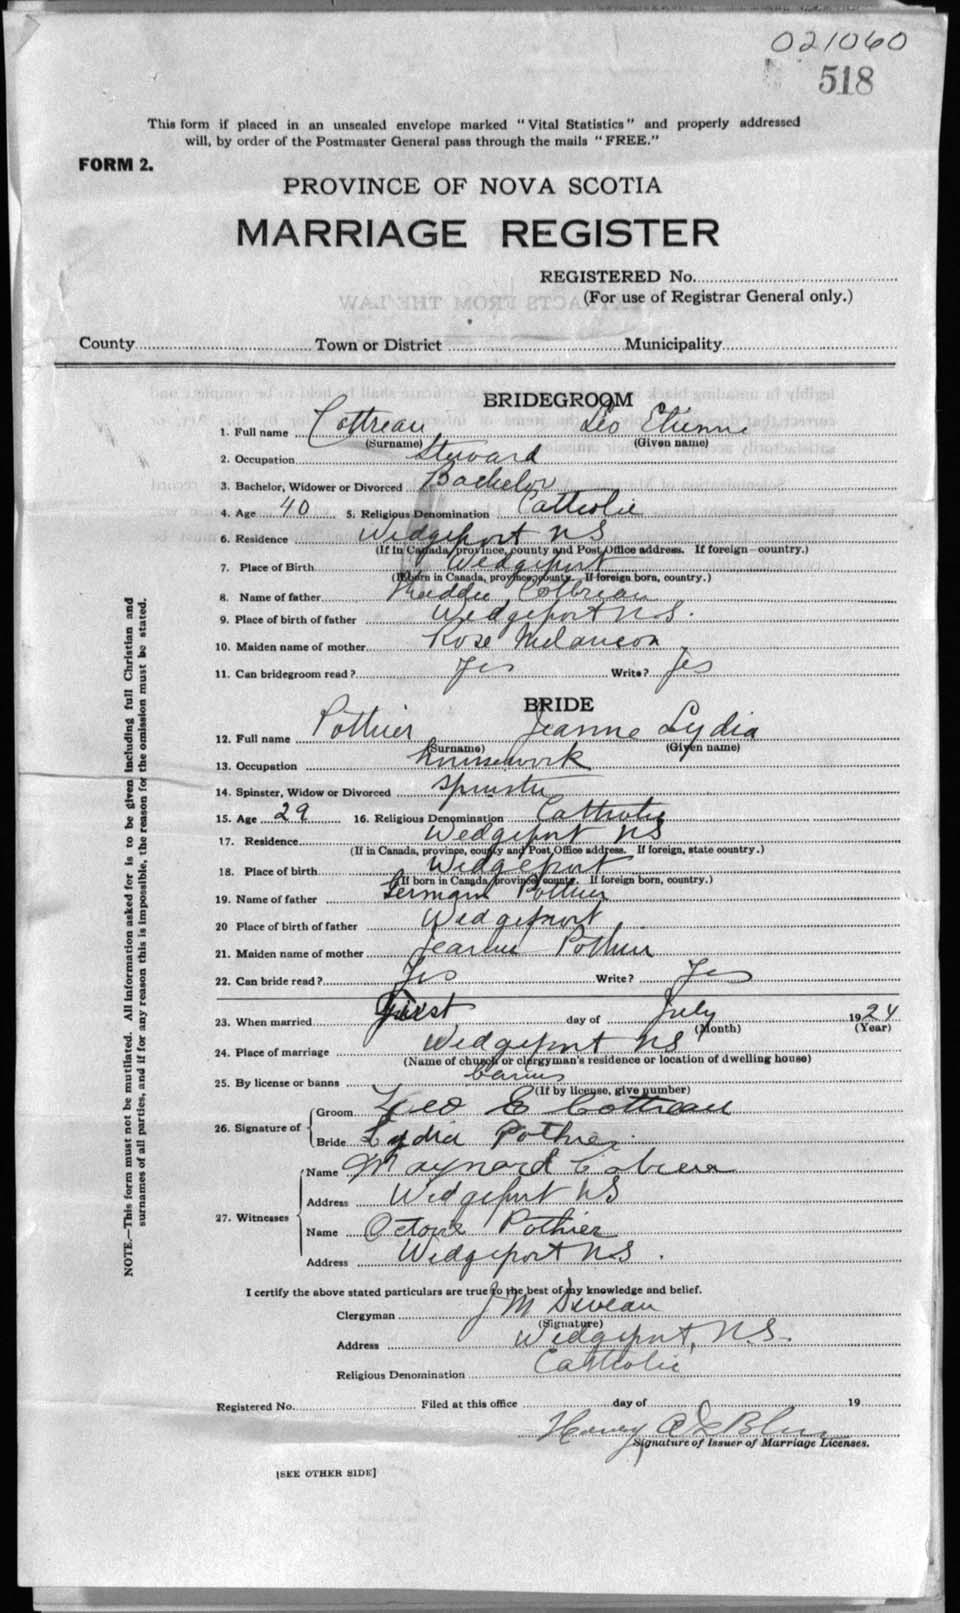 021060
518
This form if placed in an unsealed envelope marked "Vital Statistics" and properly addressed
will, by order of the Postmaster General pass through the mails "FREE."
FORM 2.
PROVINCE OF NOVA SCOTIA
MARRIAGE REGISTER
REGISTERED No.
(For use of Registrar General only.)
County Town or District Municipality
BRIDEGROOM
1. Full name Cottreau Leo Etienne
(Surname) (Given name)
2. Occupation Steward
3. Bachelor, Widower or Divorced Bachelor
4. Age 40 5. Religious Denomination Catholic
6. Residence Wedgeport NS
(If in Canada, province, county and Post Office address. If foreign—country.)
7. Place of Birth Wedgeport
(If born in Canada, province, county. If foreign born, country.)
8. Name of father Cottreau
9. Place of birth of father Wedgeport N.S.
10. Maiden name of mother Rose Melanson
11. Can bridegroom read? Yes Write? Yes
BRIDE
12. Full name Pothier Jeanne Lydia
(Surname) (Given name)
13. Occupation housework
14. Spinster, Widow or Divorced Spinster
15. Age 29 16. Religious Denomination Catholic
17. Residence Wedgeport NS
(If in Canada, province, county and Post Office address. If foreign, state country.)
18. Place of birth Wedgeport
(If born in Canada, province, county. If foreign born, country.)
19. Name of father Germain Pothier
20 Place of birth of father Wedgeport
21. Maiden name of mother Jeanne Pothier
22. Can bride read? Yes Write? Yes
23. When married first day of July 1924
(Month) (Year)
24. Place of marriage Wedgeport NS
(Name of church or clergyman's residence or location of dwelling house)
25. By license or banns banns
(If by license, give number)
26. Signature of
Groom Leo E Cottreau
Bride Lydia Pothier
27. Witnesses
Name Maynard
Address Wedgeport NS
Name Pothier
Address Wedgeport N.S.
I certify the above stated particulars are true to the best of my knowledge and belief.
Clergyman J M Deveau
(Signature)
Address Wedgeport, N.S.
Religious Denomination Catholic
Registered No. Filed at this office day of 19
Henry
Signature of Issuer of Marriage Licenses.
[SEE OTHER SIDE]
NOTE.—This form must not be mutilated. All information asked for is to be given including full Christian and
surnames of all parties, and if for any reason this is impossible, the reason for the omission must be stated.